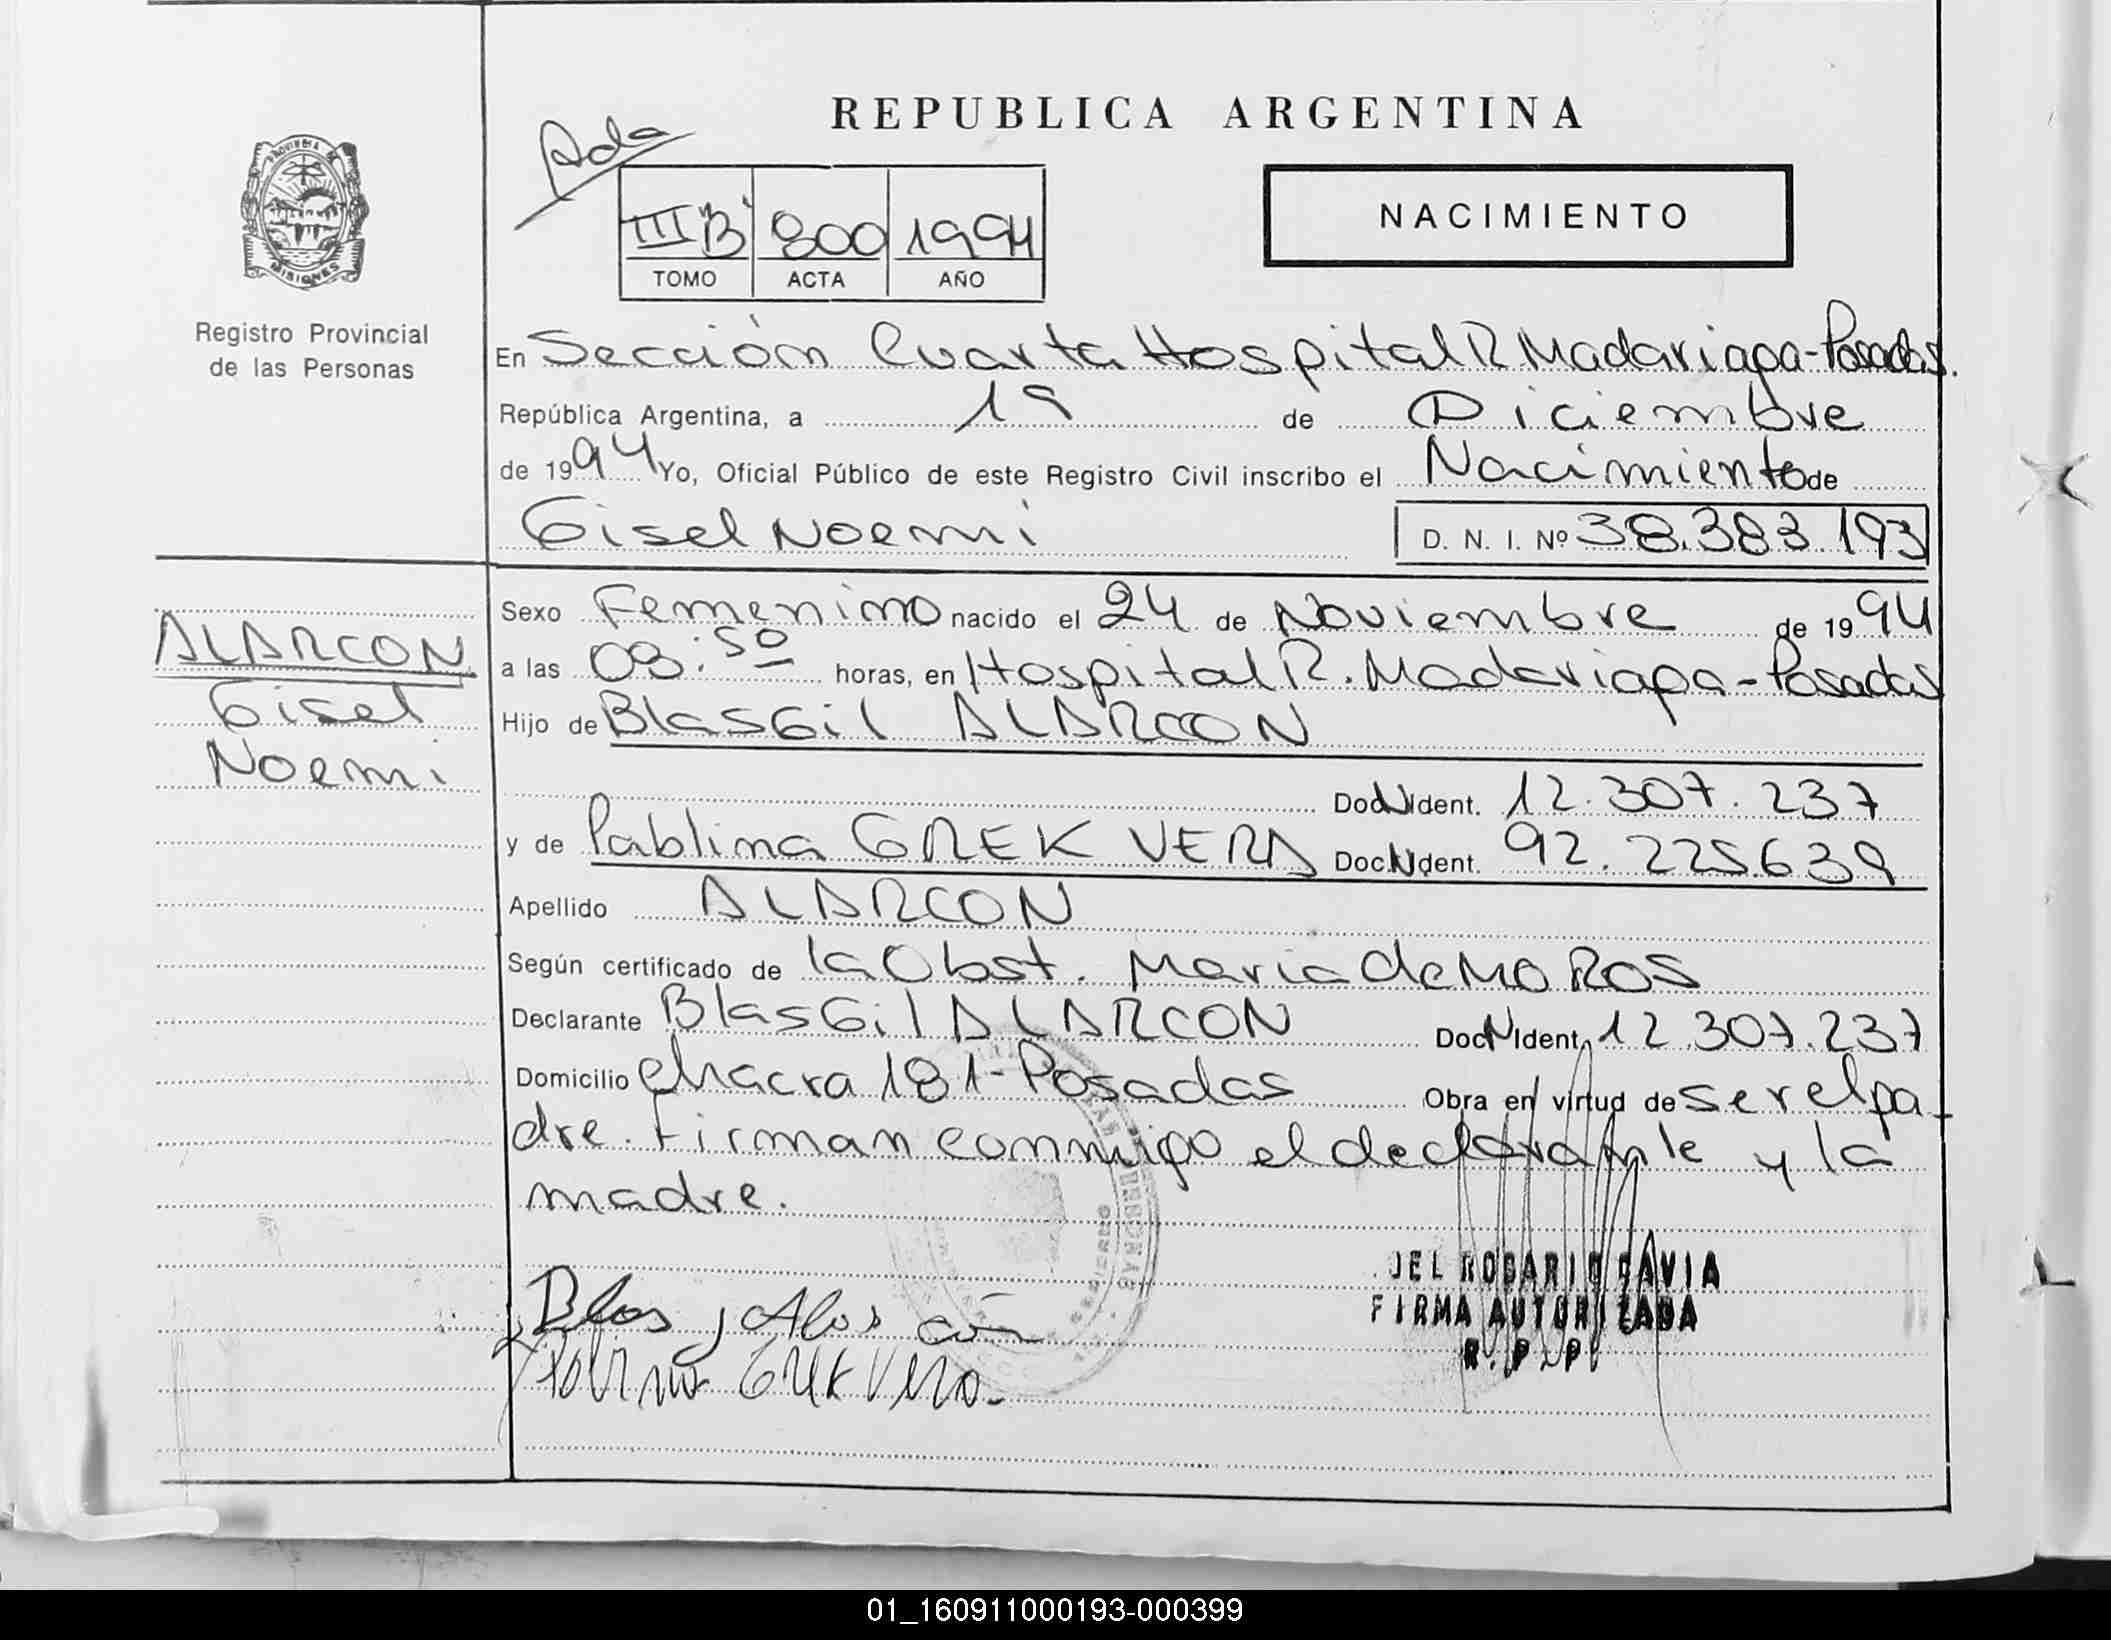 REPUBLICA ARGENTINA
Ada
III "B" 800 1994
TOMO ACTA AÑO
NACIMIENTO
PROVINCIA DE MISIONES
Registro Provincial
de las Personas
En Sección Cuarta Hospital R. Madariaga-Posadas.
República Argentina, a 19 de Diciembre
de 1994 Yo, Oficial Público de este Registro Civil inscribo el Nacimiento de
Gisel Noemi D. N. I. Nº 38.383.193
ALARCON
Gisel
Noemi
Sexo Femenino nacido el 24 de Noviembre de 1994
a las 03:50 horas, en Hospital R. Madariaga-Posadas
Hijo de Blas Gil ALARCON
Doc. Ident. 12.307.237
y de Pablina GREK VERA Doc. Ident. 92.225.639
Apellido ALARCON
Según certificado de la Obst. Maria de MOROS
Declarante Blas Gil ALARCON Doc. Ident. 12.307.237
Domicilio Chacra 181-Posadas Obra en virtud de ser el pa-
dre. Firman conmigo el declarante y la
madre.
DEL ROSARIO FAVIA
FIRMA AUTORIZADA
R. P. P.
Blas, Alarcón
Pablina Grek Vera
01_160911000193-000399